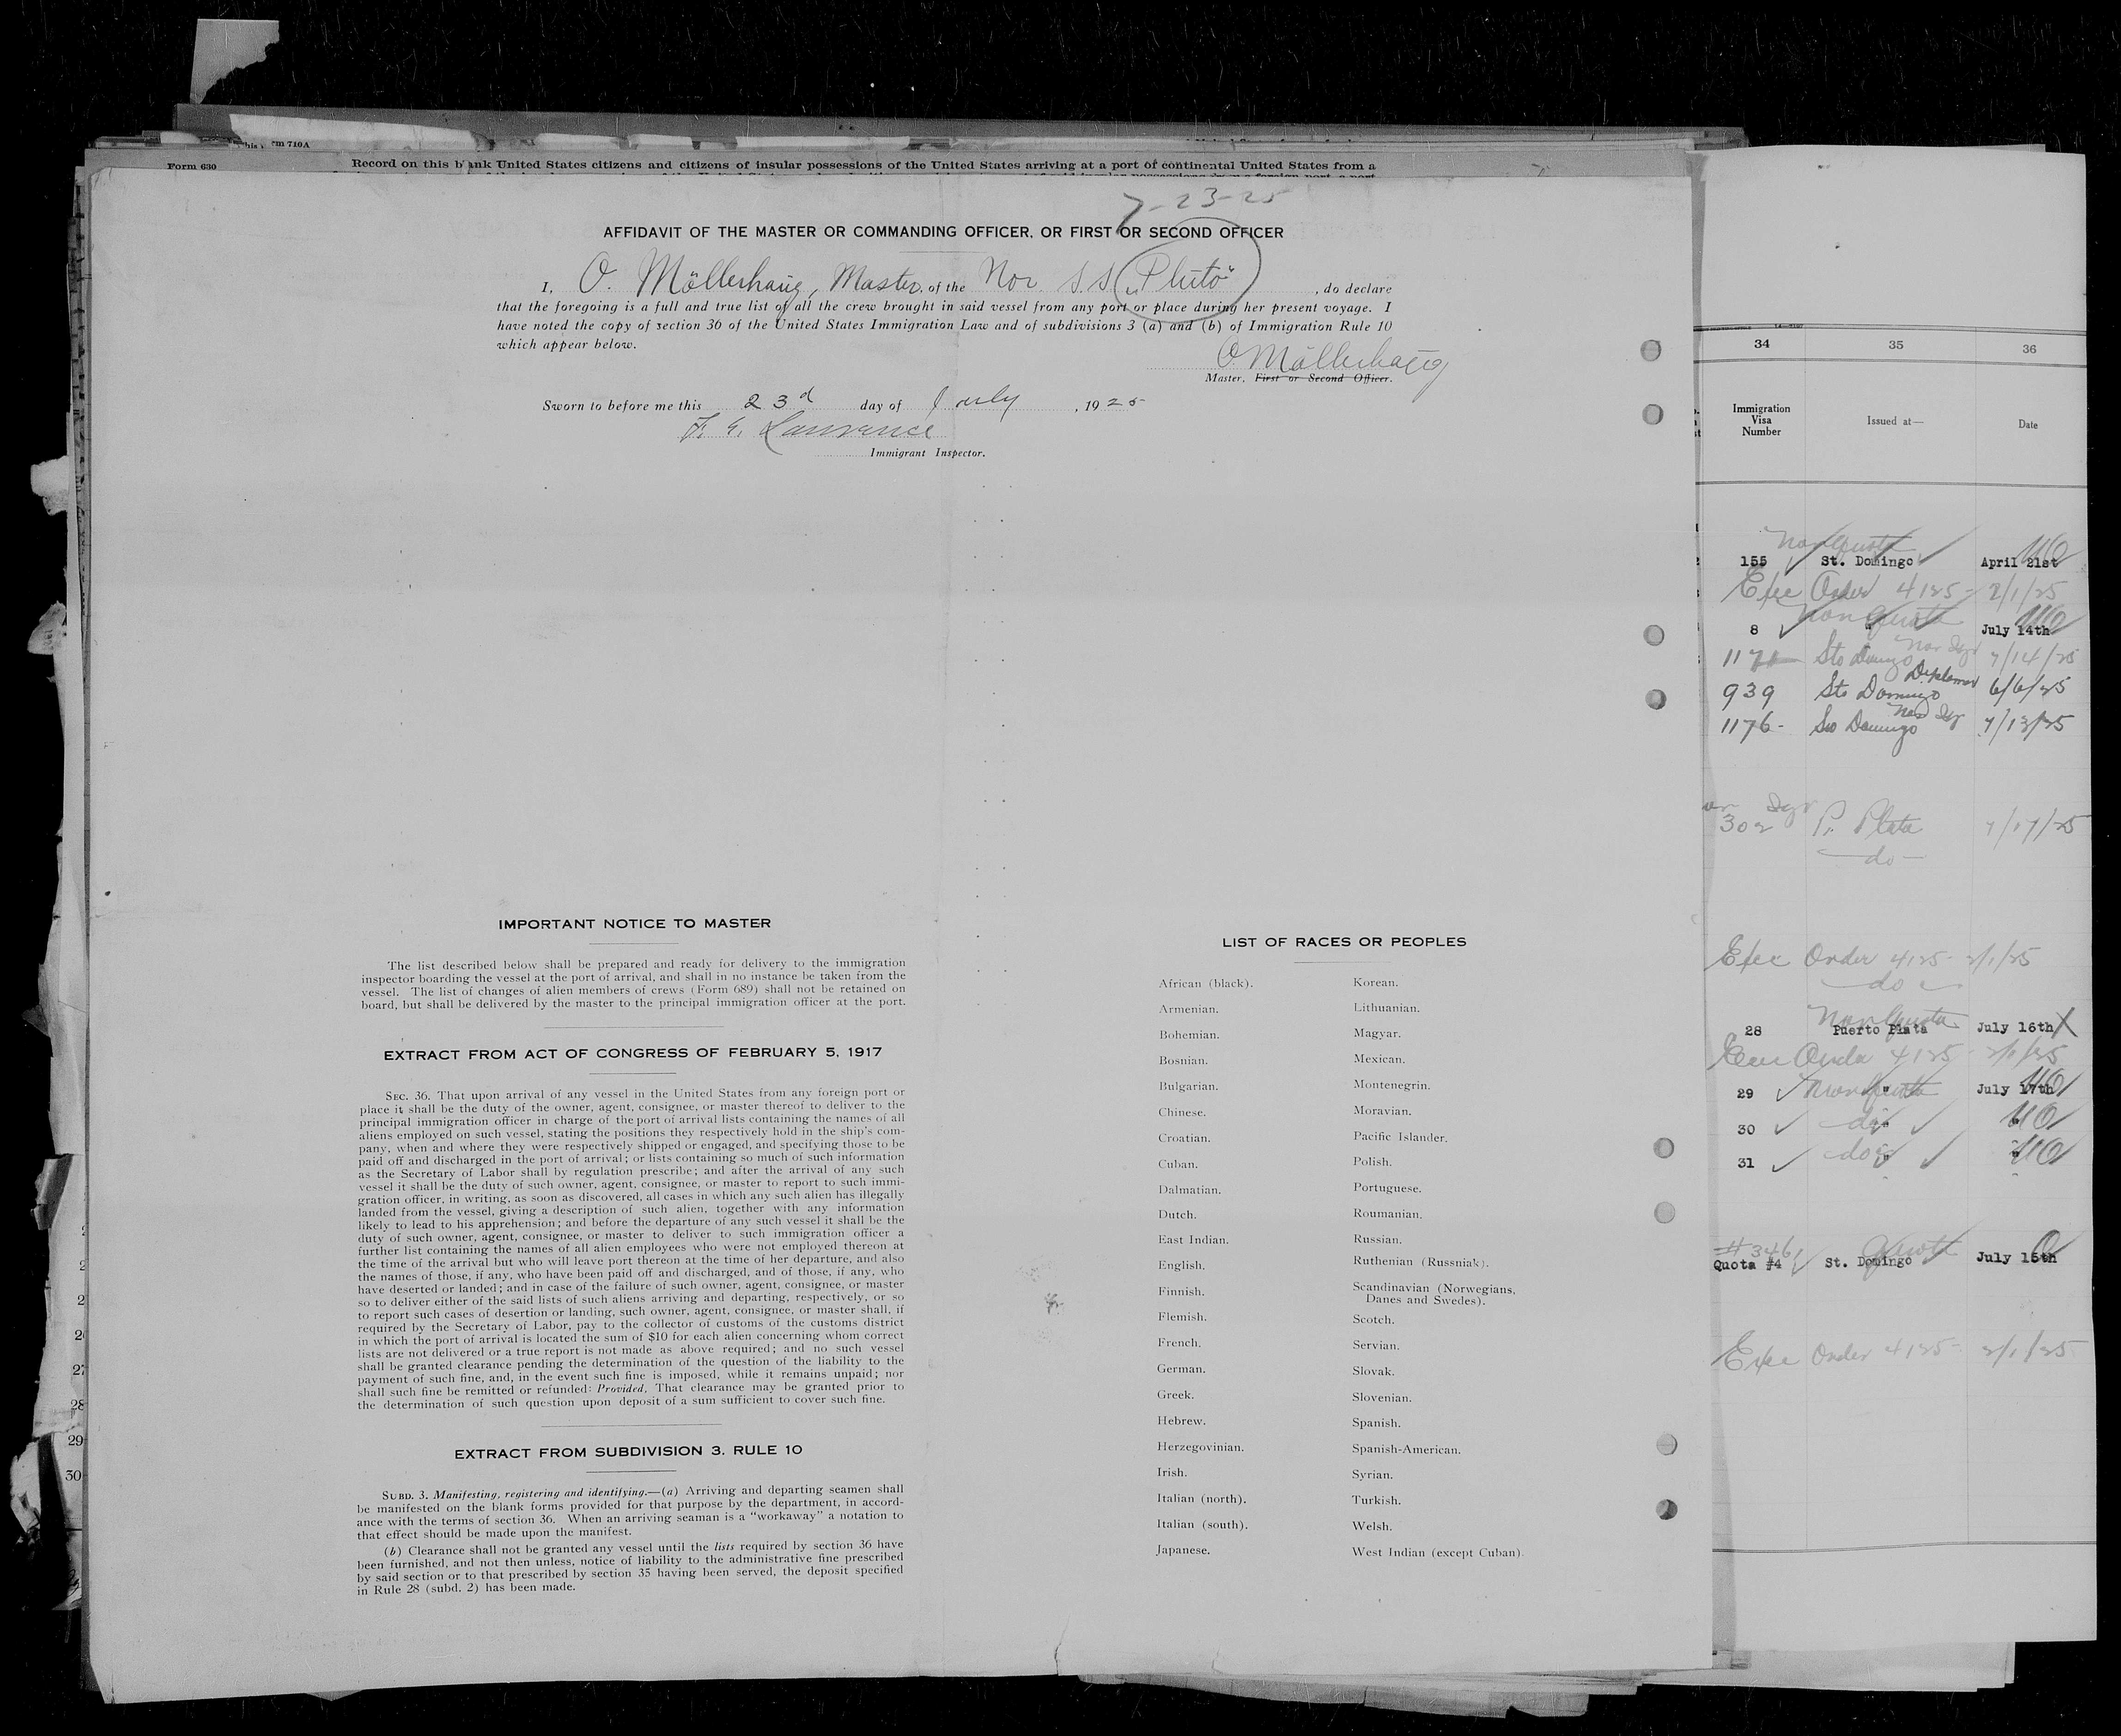 Form 710A
Form 630
Record on this blank United States citizens and citizens of insular possessions of the United States arriving at a port of continental United States from a
7-23-25
AFFIDAVIT OF THE MASTER OR COMMANDING OFFICER, OR FIRST OR SECOND OFFICER
I, O. Möllerhaug, Master, of the Nor. S.S. „Pluto", do declare
that the foregoing is a full and true list of all the crew brought in said vessel from any port or place during her present voyage. I
have noted the copy of section 36 of the United States Immigration Law and of subdivisions 3 (a) and (b) of Immigration Rule 10
which appear below.
O Möllerhaug
Master, First or Second Officer.
Sworn to before me this 23d day of July, 1925
F. E. Lawrence
Immigrant Inspector.
IMPORTANT NOTICE TO MASTER
The list described below shall be prepared and ready for delivery to the immigration
inspector boarding the vessel at the port of arrival, and shall in no instance be taken from the
vessel. The list of changes of alien members of crews (Form 689) shall not be retained on
board, but shall be delivered by the master to the principal immigration officer at the port.
EXTRACT FROM ACT OF CONGRESS OF FEBRUARY 5, 1917
SEC. 36. That upon arrival of any vessel in the United States from any foreign port or
place it shall be the duty of the owner, agent, consignee, or master thereof to deliver to the
principal immigration officer in charge of the port of arrival lists containing the names of all
aliens employed on such vessel, stating the positions they respectively hold in the ship's com-
pany, when and where they were respectively shipped or engaged, and specifying those to be
paid off and discharged in the port of arrival; or lists containing so much of such information
as the Secretary of Labor shall by regulation prescribe; and after the arrival of any such
vessel it shall be the duty of such owner, agent, consignee, or master to report to such immi-
gration officer, in writing, as soon as discovered, all cases in which any such alien has illegally
landed from the vessel, giving a description of such alien, together with any information
likely to lead to his apprehension; and before the departure of any such vessel it shall be the
duty of such owner, agent, consignee, or master to deliver to such immigration officer a
further list containing the names of all alien employees who were not employed thereon at
the time of the arrival but who will leave port thereon at the time of her departure, and also
the names of those, if any, who have been paid off and discharged, and of those, if any, who
have deserted or landed; and in case of the failure of such owner, agent, consignee, or master
so to deliver either of the said lists of such aliens arriving and departing, respectively, or so
to report such cases of desertion or landing, such owner, agent, consignee, or master shall, if
required by the Secretary of Labor, pay to the collector of customs of the customs district
in which the port of arrival is located the sum of $10 for each alien concerning whom correct
lists are not delivered or a true report is not made as above required; and no such vessel
shall be granted clearance pending the determination of the question of the liability to the
payment of such fine, and, in the event such fine is imposed, while it remains unpaid; nor
shall such fine be remitted or refunded: Provided, That clearance may be granted prior to
the determination of such question upon deposit of a sum sufficient to cover such fine.
EXTRACT FROM SUBDIVISION 3, RULE 10
SUBD. 3. Manifesting, registering and identifying.—(a) Arriving and departing seamen shall
be manifested on the blank forms provided for that purpose by the department, in accord-
ance with the terms of section 36. When an arriving seaman is a "workaway" a notation to
that effect should be made upon the manifest.
(b) Clearance shall not be granted any vessel until the lists required by section 36 have
been furnished, and not then unless, notice of liability to the administrative fine prescribed
by said section or to that prescribed by section 35 having been served, the deposit specified
in Rule 28 (subd. 2) has been made.
LIST OF RACES OR PEOPLES
African (black). Korean.
Armenian. Lithuanian.
Bohemian. Magyar.
Bosnian. Mexican.
Bulgarian. Montenegrin.
Chinese. Moravian.
Croatian. Pacific Islander.
Cuban. Polish.
Dalmatian. Portuguese.
Dutch. Roumanian.
East Indian. Russian.
English. Ruthenian (Russniak).
Finnish. Scandinavian (Norwegians,
Danes and Swedes).
Flemish. Scotch.
French. Servian.
German. Slovak.
Greek. Slovenian.
Hebrew. Spanish.
Herzegovinian. Spanish-American.
Irish. Syrian.
Italian (north). Turkish.
Italian (south). Welsh.
Japanese. West Indian (except Cuban).
34 35 36
Immigration
Visa
Number
Issued at—
Date
Non Quota
155 St. Domingo April 21st
Exec Order 4125 - 2/1/25
Non Quota
8 " July 14th
1171 Sto Domingo 7/14/25
Diplomat
939 Sto Domingo 6/6/25
1176- Sto Domingo 7/13/25
302 P. Plata 7/17/25
do
Exec Order 4125 - 2/1/25
do
Non Quota
28 Puerto Plata July 16th X
Exec Order 4125 - 2/1/25
29 Non Quota July 17th
30 do "
31 do "
#346
Quota #4 St. Domingo Quota July 15th
Exec Order 4125- 2/1/25
27
28
29
30